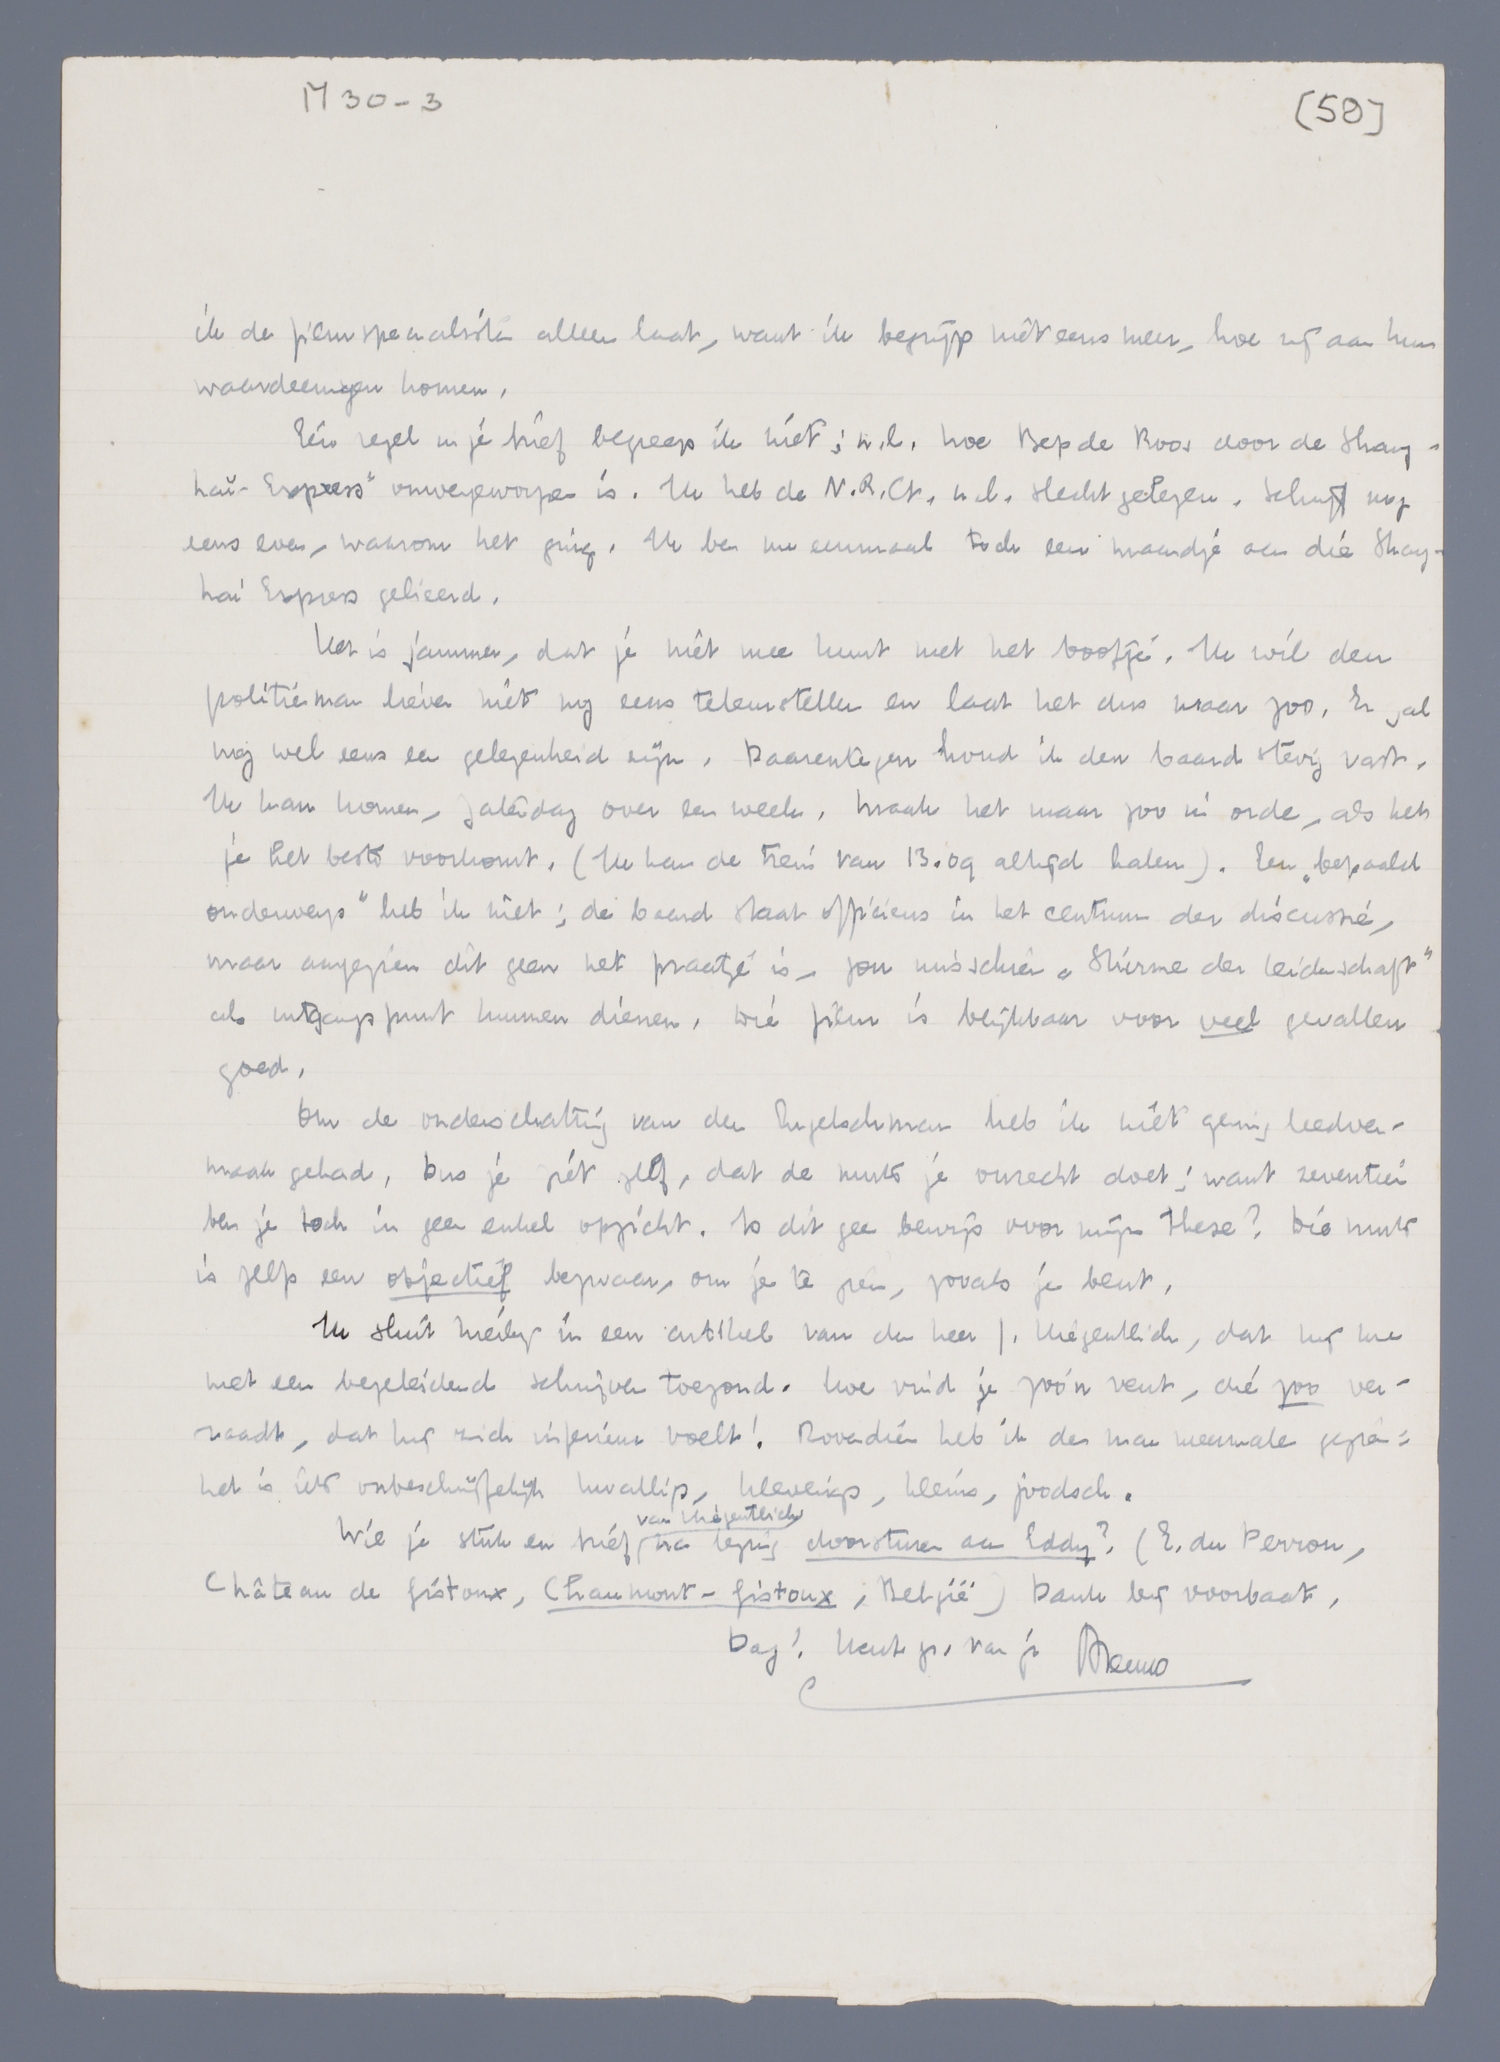 M 30-3
[50]
ik de filmspecialisten alleen laat, want ik begrijp niet eens meer, hoe zij aan hun
waardeeringen komen.
Eén regel in je brief begreep ik niet; n.l. hoe Bep de Roos door de Shang-
hai-Express" omvergeworpen is. Ik heb de N.R.Ct. n.l. slecht gelezen. Schrijf nog
eens even, waarom het ging. Ik ben nu eenmaal toch een maandje aan die Shang-
hai Express gelieerd.
Het is jammer, dat je niet mee kunt met het bootje. Ik wil den
politieman liever niet nog eens teleurstellen en laat het dus maar zoo. Er zal
nog wel eens een gelegenheid zijn. Daarentegen houd ik den baard stevig vast.
Ik kan komen, Zaterdag over een week. Maak het maar zoo in orde, als het
je het beste voorkomt. (Ik kan de trein van 13.09 altijd halen). Een „bepaald
onderwerp" heb ik niet; de baard staat officieus in het centrum der discussie,
maar aangezien dit geen net praatje is, zou misschien „Stürme der Leidenschaft"
als uitgangspunt kunnen dienen. Die film is blijkbaar voor veel gevallen
goed.
Om de onderschatting van den Engelschman heb ik niet weinig leedver-
maak gehad. Dus je ziet zelf, dat de muts je onrecht doet; want zeventien
ben je toch in geen enkel opzicht. Is dit geen bewijs voor mijn these? Die muts
is zelfs een objectief bezwaar, om je te zien, zooals je bent.
Ik sluit hierbij in een artikel van den heer J. Kriegentlich, dat hij me
met een begeleidend schrijven toezond. Hoe vind je zoo'n vent, die zoo ver-
raadt, dat hij zich inferieur voelt! Bovendien heb ik den man meermalen gezien:
het is iets onbeschrijfelijk kwalligs, kleverigs, kleins, joodsch.
van Kriegentlich
Wil je stuk en brief, na lezing doorsturen aan Eddy? (E. du Perron,
Château de Gistoux, Chaumont-Gistoux, België) Dank bij voorbaat.
Dag! Hart. gr. van je Menno